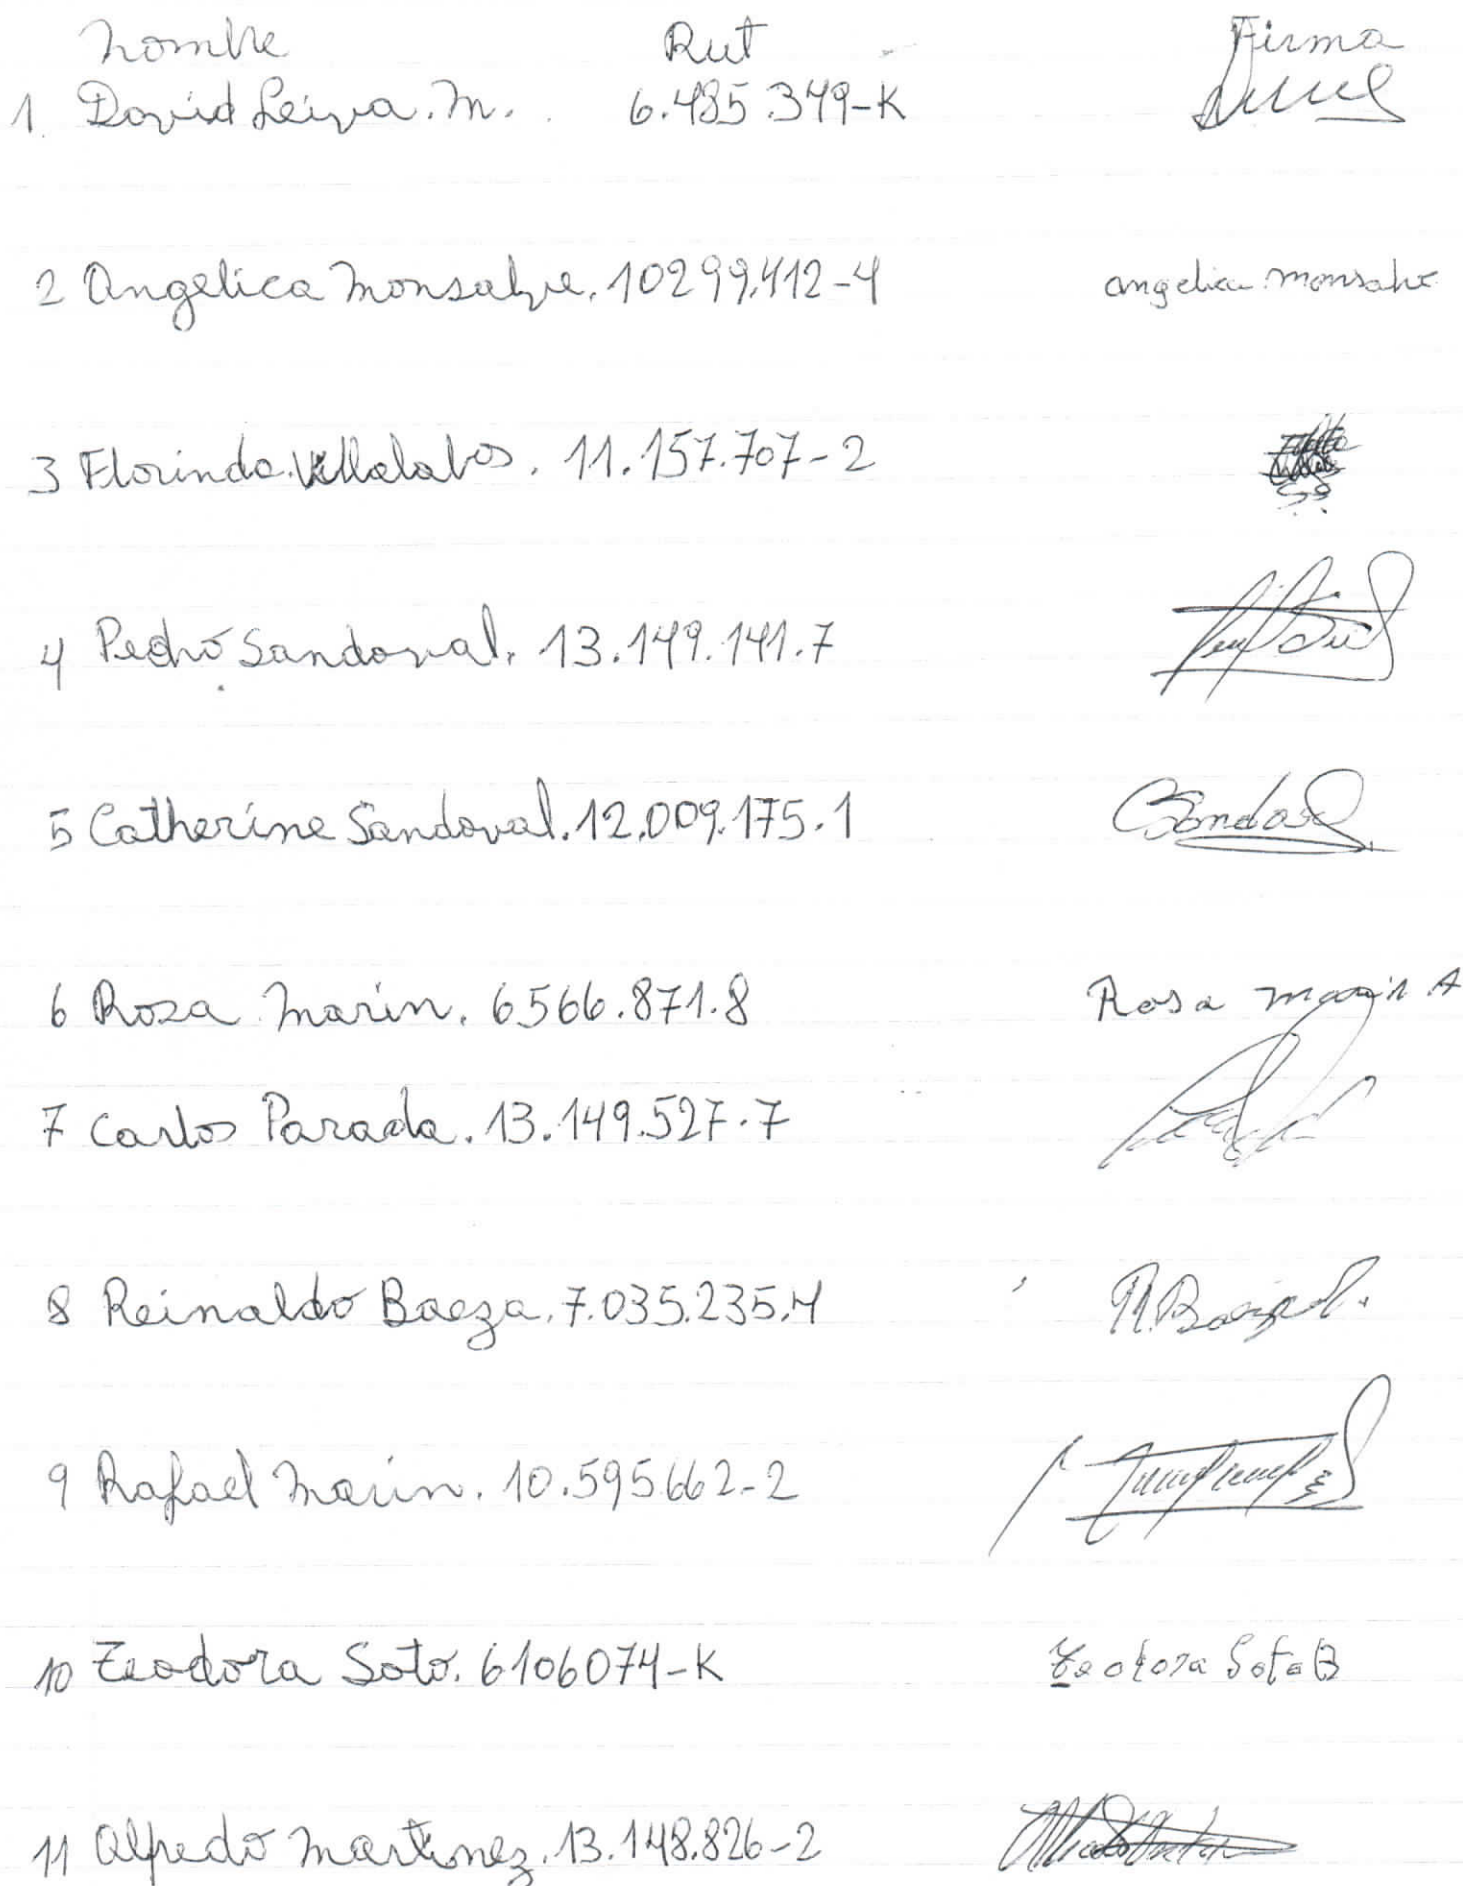 Nombre Rut Firma
1. David Leiva. M. 6.485.349-K
2 Angelica Monsalve. 10299.412-4 angelica monsalve
3 Florinda Villalobos. 11.157.707-2
4 Pedro Sandoval. 13.149.141.7
5 Catherine Sandoval. 12.009.175.1 CSandoval
6 Rosa Marin. 6566.871.8 Rosa marin A
7 Carlos Parada. 13.149.527.7
8 Reinaldo Baeza. 7.035.235.4 R.Baeza
9 Rafael Marin. 10.595.662-2
10 Teodora Soto. 6106074-K Teodora Soto B
11 Alfredo Martinez. 13.148.826-2